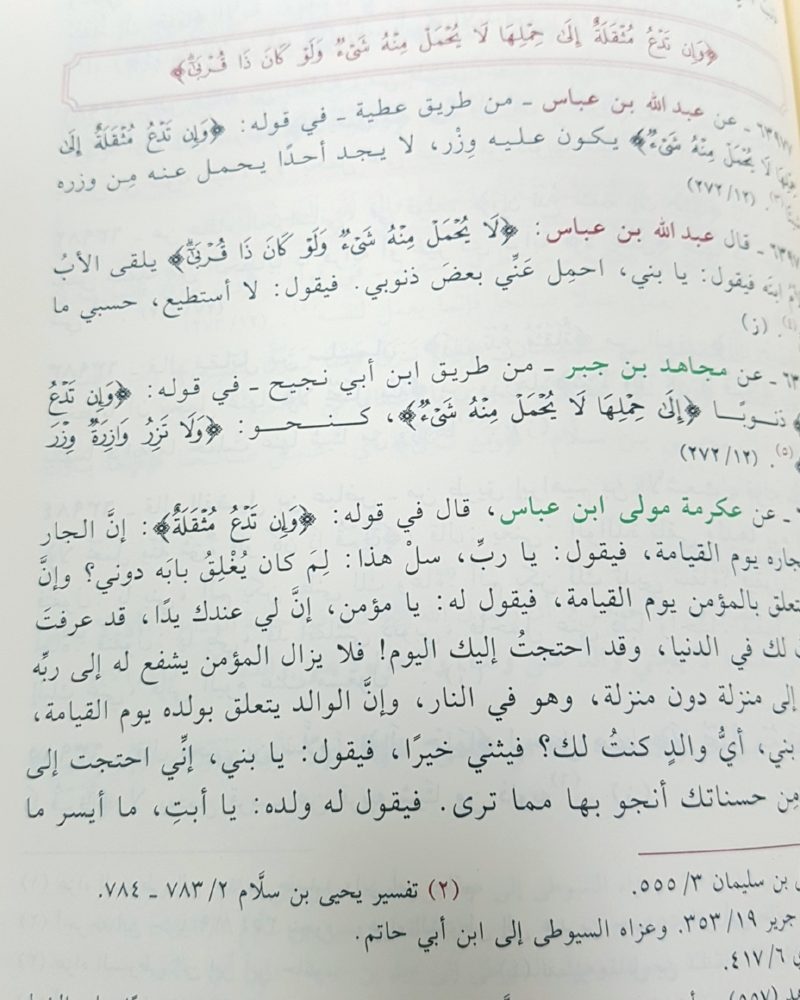 ﴿وَإِن تَدْعُ مُثْقَلَةٌ إِلَىٰ حِمْلِهَا لَا يُحْمَلْ مِنْهُ شَىْءٌ وَلَوْ كَانَ ذَا قُرْبَىٰٓ﴾
٦٣٩٧٧ ـ عن عبد الله بن عباس ـ من طريق عطية ـ في قوله: ﴿وَإِن تَدْعُ مُثْقَلَةٌ إِلَىٰ
حِمْلِهَا لَا يُحْمَلْ مِنْهُ شَىْءٌ﴾ يكون عليه وِزْر، لا يجد أحدًا يحمل عنه مِن وزره
(٣). (١٢/ ٢٧٢)
ـ قال عبد الله بن عباس: ﴿لَا يُحْمَلْ مِنْهُ شَىْءٌ وَلَوْ كَانَ ذَا قُرْبَىٰٓ﴾ يلقى الأبُ
ابنَه فيقول: يا بني، احمِل عَنِّي بعضَ ذنوبي. فيقول: لا أستطيع، حسبي ما
(٤). (ز)
ـ عن مجاهد بن جبر ـ من طريق ابن أبي نجيح ـ في قوله: ﴿وَإِن تَدْعُ
﴾ ذنوبًا ﴿إِلَىٰ حِمْلِهَا لَا يُحْمَلْ مِنْهُ شَىْءٌ﴾، كنحو: ﴿وَلَا تَزِرُ وَازِرَةٌ وِزْرَ
﴾(٥). (١٢/ ٢٧٢)
ـ عن عكرمة مولى ابن عباس، قال في قوله: ﴿وَإِن تَدْعُ مُثْقَلَةٌ﴾: إنَّ الجار
بجاره يوم القيامة، فيقول: يا ربِّ، سلْ هذا: لِمَ كان يُغْلِقُ بابَه دوني؟ وإنَّ
تعلق بالمؤمن يوم القيامة، فيقول له: يا مؤمن، إنَّ لي عندك يدًا، قد عرفتَ
لك في الدنيا، وقد احتجتُ إليك اليوم! فلا يزال المؤمن يشفع له إلى ربِّه
إلى منزلة دون منزلة، وهو في النار، وإنَّ الوالد يتعلق بولده يوم القيامة،
بني، أيُّ والدٍ كنتُ لك؟ فيثني خيرًا، فيقول: يا بني، إنِّي احتجت إلى
مِن حسناتك أنجو بها مما ترى. فيقول له ولده: يا أبتِ، ما أيسر ما
بن سليمان ٣/ ٥٥٥. (٢) تفسير يحيى بن سلَّام ٢/ ٧٨٣ ـ ٧٨٤.
جرير ١٩/ ٣٥٣. وعزاه السيوطي إلى ابن أبي حاتم.
٦/ ٤١٧.